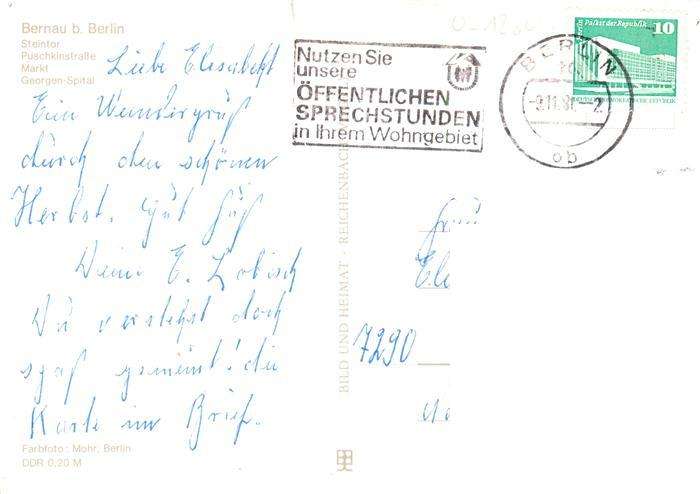 Bernau b. Berlin
Steintor
Puschkinstraße
Markt
Georgen-Spital
Liebe Elisabeth
Ein Wandergruß
durch den schönen
Herbst. Gut Fuß
Deine E. Lobisch
Du verstehst doch
spaß gemeint! die
Karte im Brief.
Farbfoto: Mohr, Berlin
DDR 0,20 M
BILD UND HEIMAT · REICHENBACH
Nutzen Sie
unsere
ÖFFENTLICHEN
SPRECHSTUNDEN
in Ihrem Wohngebiet
BERLIN
ob
Palast der Republik
10
Frau
7290